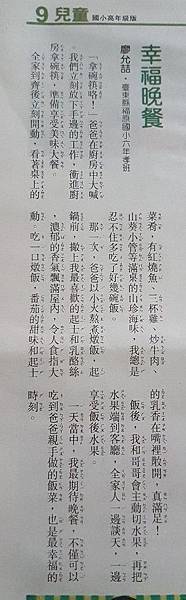 9 兒童 國小高年級版
幸福晚餐
廖允喆 臺東縣福原國小六年孝班
「拿碗筷咯！」爸爸在廚房中大喊
。我們立刻放下手邊的工作，衝進廚
房拿碗筷，準備享受美味大餐。
全家到齊後立刻開動，看著桌上的
菜肴，有紅燒魚、三杯雞、炒牛肉、
山葵小管等滿桌的山珍海味，我總是
忍不住多吃了好幾碗飯。
那一次，爸爸以小火熬煮燉飯，起
鍋前，撒上我最喜歡的起士和乳酪絲
，濃郁的香氣飄滿屋內，令人食指大
動。吃一口燉飯，番茄的甜味和起士
的乳香在嘴裡散開，真滿足！
飯後，我和哥哥會主動切水果，再把
水果端到客廳，全家人一邊談天，一邊
享受飯後水果。
一天當中，我最期待晚餐，不僅可以
吃到爸爸親手做的飯菜，也是最幸福的
時刻。